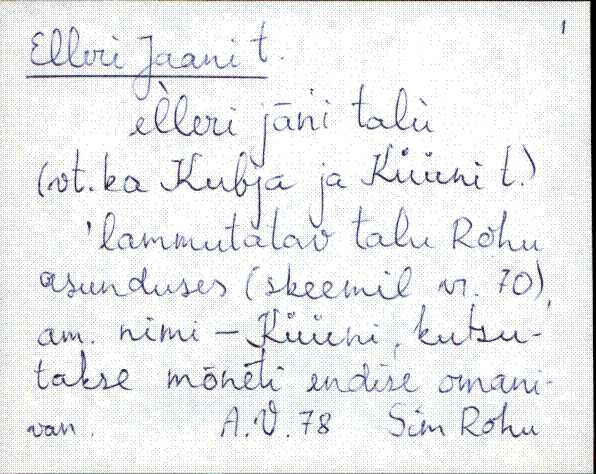 1
Elleri Jaani t.
el̀leri jāńi talù
(vt. ka Kubja ja Küüni t.)
'lammutatav talu Rohu
asunduses (skeemil nr. 70),
am. nimi – Küüni, kutsu-
takse mõnèti endise omani-
van. A.V. 78 Sim Rohu